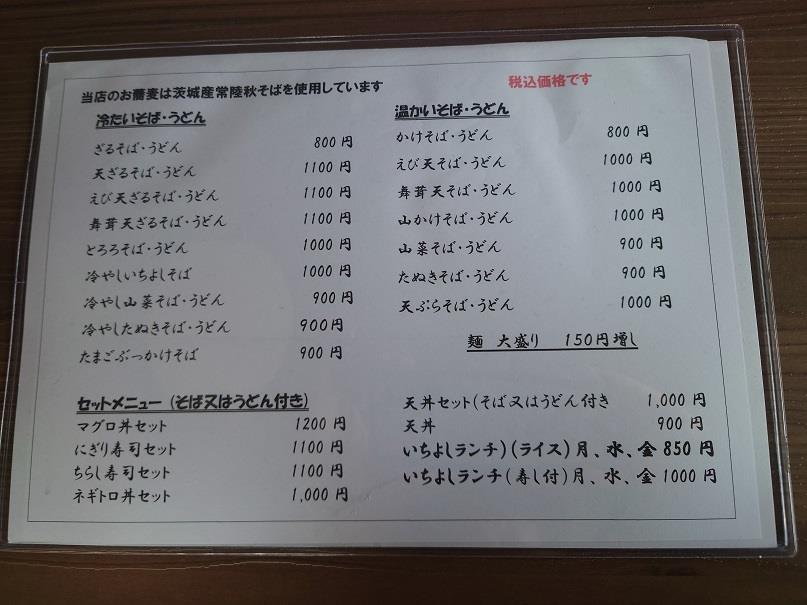 当店のお蕎麦は茨城産常陸秋そばを使用しています
税込価格です
冷たいそば・うどん
ざるそば・うどん 800円
天ざるそば・うどん 1100円
えび天ざるそば・うどん 1100円
舞茸天ざるそば・うどん 1100円
とろろそば・うどん 1000円
冷やしいちよしそば 1000円
冷やし山菜そば・うどん 900円
冷やしたぬきそば・うどん 900円
たまごぶっかけそば 900円
温かいそば・うどん
かけそば・うどん 800円
えび天そば・うどん 1000円
舞茸天そば・うどん 1000円
山かけそば・うどん 1000円
山菜そば・うどん 900円
たぬきそば・うどん 900円
天ぷらそば・うどん 1000円
麺 大盛り 150円増し
セットメニュー(そば又はうどん付き)
マグロ丼セット 1200円
にぎり寿司セット 1100円
ちらし寿司セット 1100円
ネギトロ丼セット 1,000円
天丼セット(そば又はうどん付き 1,000円
天丼 900円
いちよしランチ)(ライス)月、水、金 850円
いちよしランチ(寿し付)月、水、金 1000円